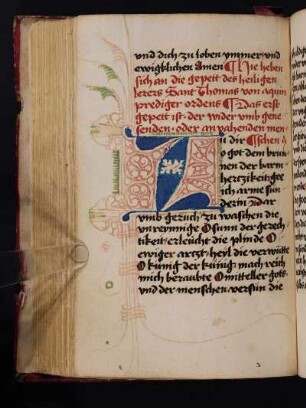 vnd dich zu loben ymmer vnd
ewigklichen Amen ¶ Hie heben
sich an die gepett des heiligen
lerers Sant Thomas von aquin
prediger ordens ¶ Das erst
gepett ist der wider vmb gene
senden oder anvahenden men
Zu dir ¶ schen
o got dem brun
nen der barm
hertzikeit gee
ich arme sun
derin Dar
vmb geruch zu waschen die
vnreynnige O sunn der gerech
tikeit erleucht die plinde O
ewiger artzt heyl die verwutte
O kunig der kunig mach reich
mich beraubte O mitteller gots
vnd der menschen versun die